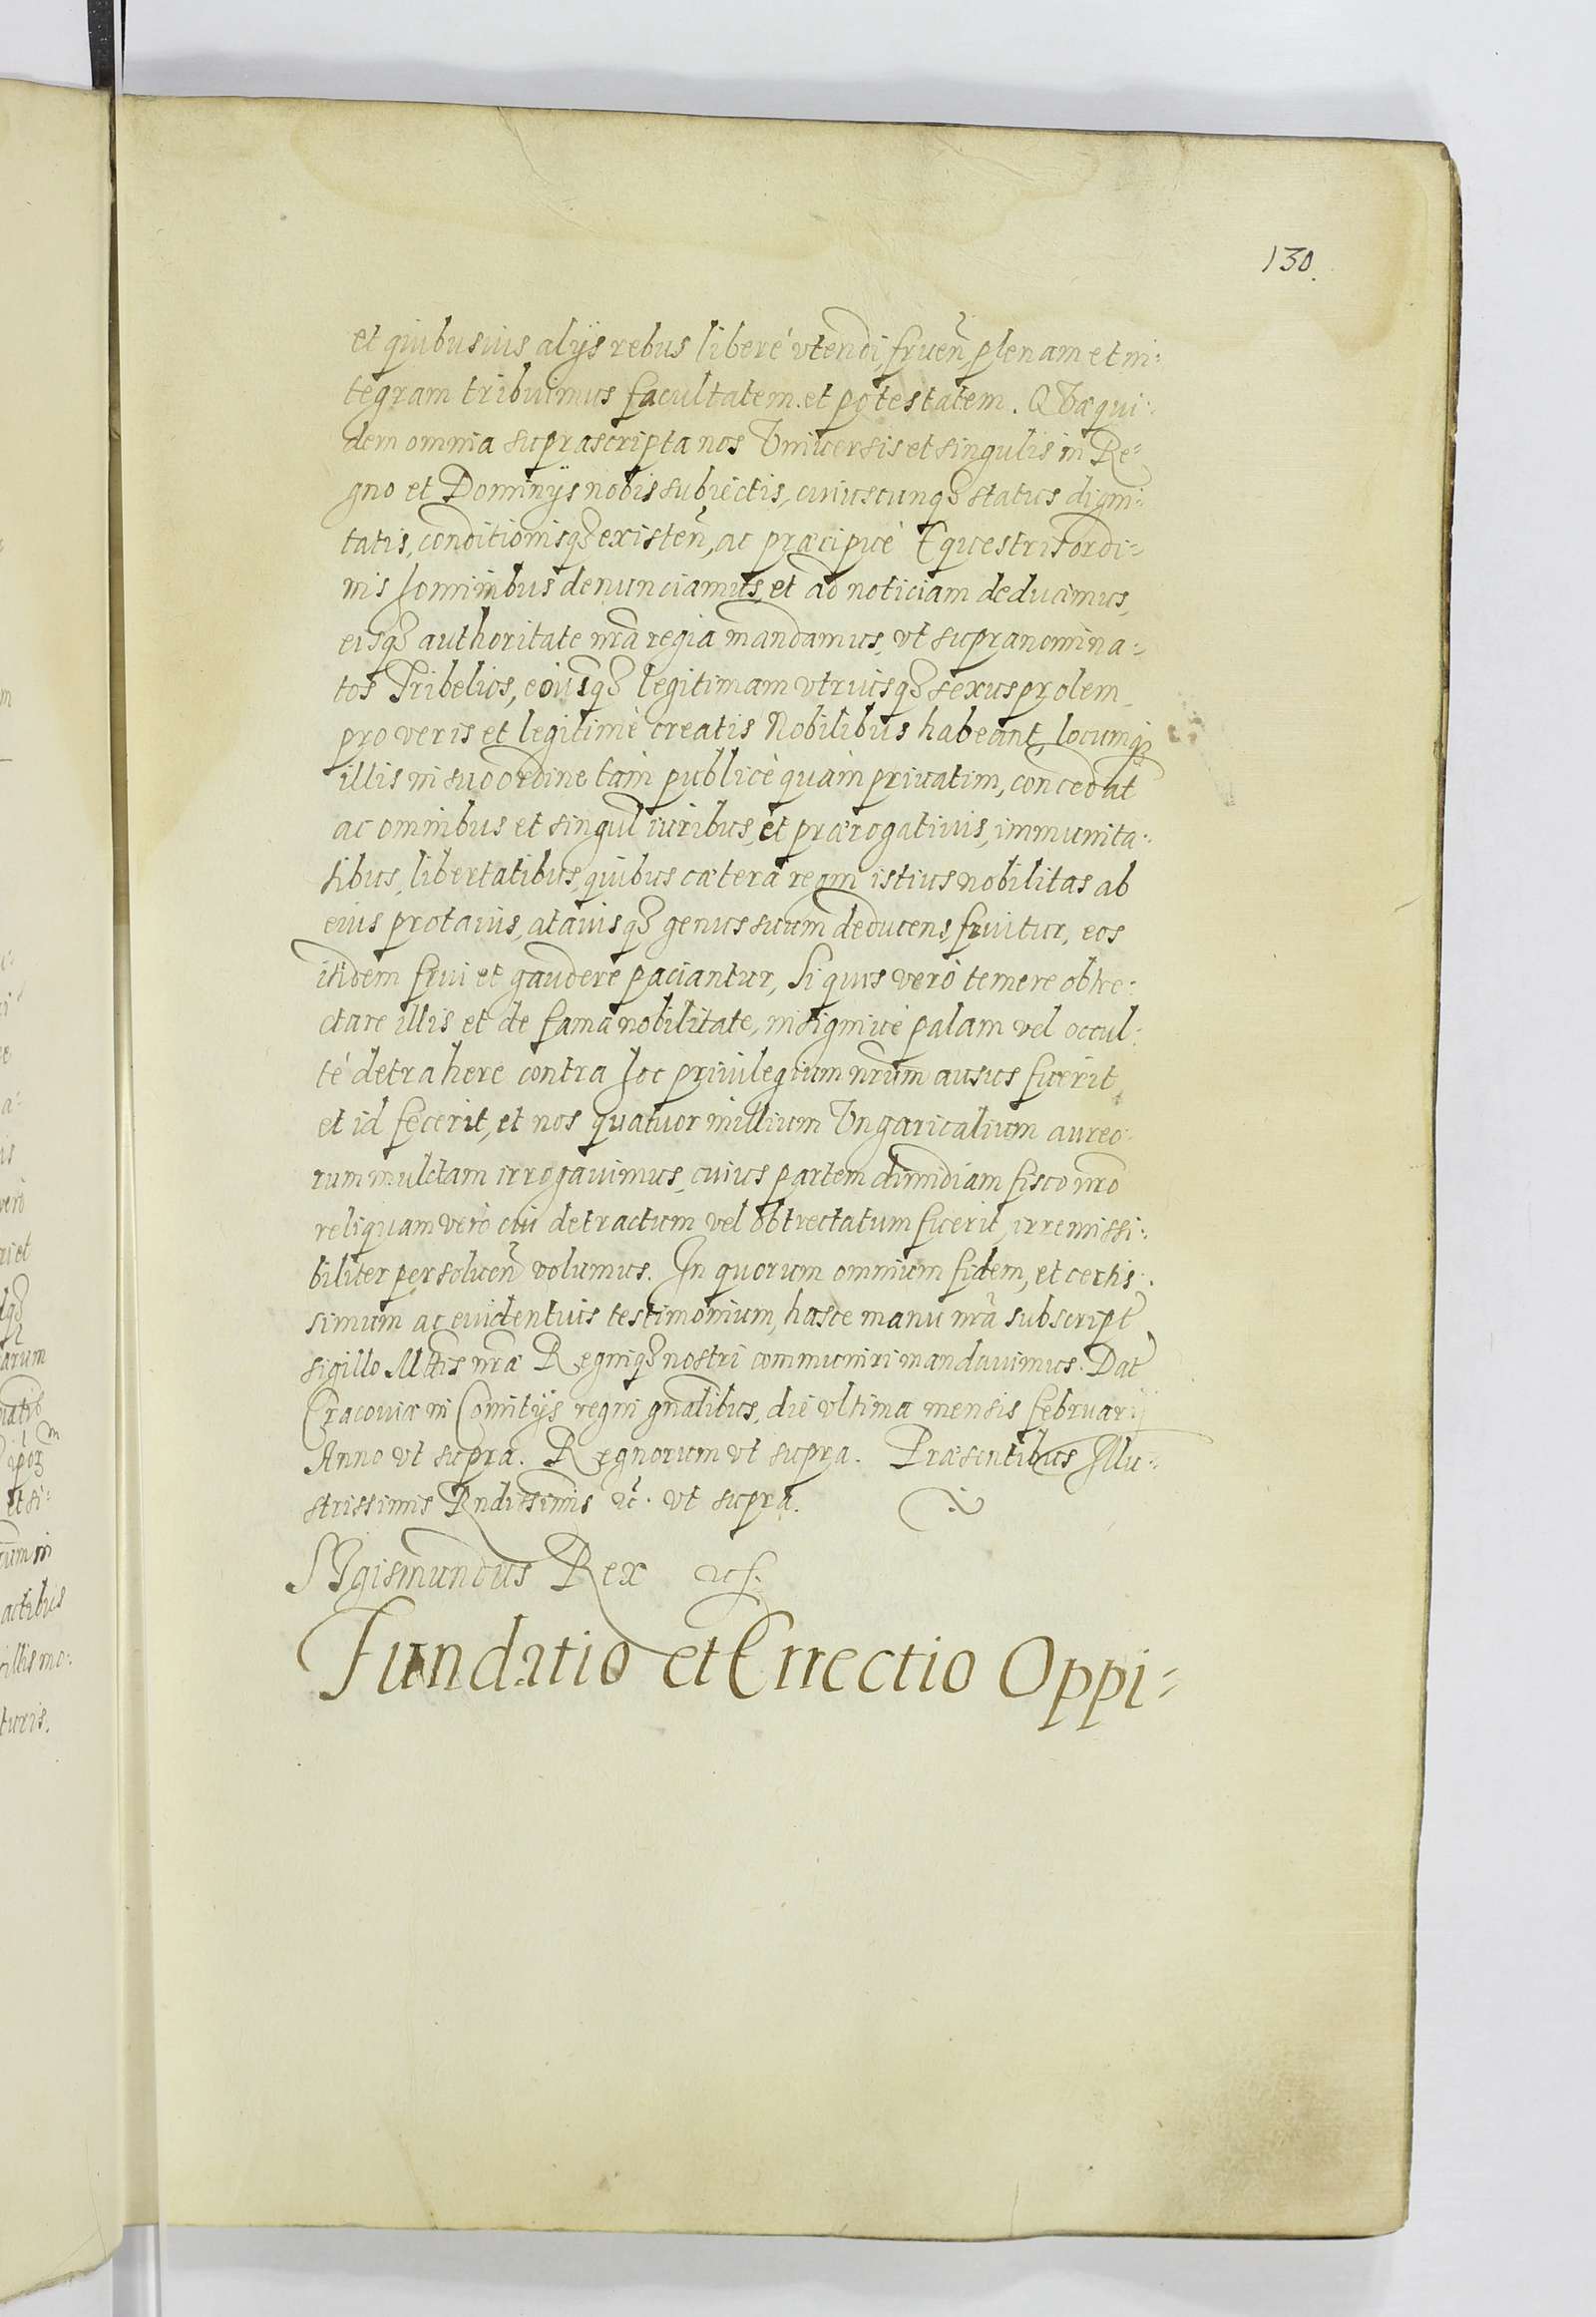 130.
et quibusuis alijs rebus liberé vtendi, fruen̄, plenam et in-
tegram tribuimus facultatem et potestatem. Quæ qui-
dem omnia suprascripta nos Vniuersis et singulis in Re-
gno et Dominijs nobis subiectis, cuiuscunqȝ status digni-
tatis, conditionisqȝ existen̄, ac præcipuè Equestris ordi-
nis hominibus denunciamus, et ad noticiam deducimus,
eisqȝ authoritate nr̄a regia mandamus, vt supranomina-
tos Tribelios, eorūqȝ legitimam vtriusqȝ sexus prolem
pro veris et legitimè creatis Nobilibus habeant, locumqȝ
illis in suo ordine tam publicè quam priuatim, concedāt
ac omnibus et singul iuribus, et prærogatiuis, immunita-
tibus, libertatibus, quibus cætera regni istius nobilitas ab
eius protauis, atauisqȝ genus suum deducens, fruitur, eos
itidem frui et gaudere paciantur, Si quis verò temere obtre-
ctare illis et de fama nobilitate, insigniue palam vel occul-
té detrahere contra hoc priuilegium nr̄um ausus fuerit
et id fecerit, et nos quatuor millium Vngaricalium aureo-
rum mulctam irrogauimus, cuius partem dimidiam fisco nr̄o
reliquam verò cui detractum vel obtrectatum fuerit, irremissi-
biliter persoluen̄ volumus. In quorum omnium fidem, et certis-
simum ac euidentius testimonium, hasce manu nr̄a subscript
sigillo Mttis nr̄æ Regniqȝ nostri communiri mandauimus. Dat
Cracouiæ in Comitijs regni gn̄alibus, die vltima mensis februarij
Anno vt supra. Regnorum vt supra. Præsentibus Illu-
strissimis Rndissimis &c. vt supra.
Sigismundus Rex
Fundatio et Errectio Oppi-